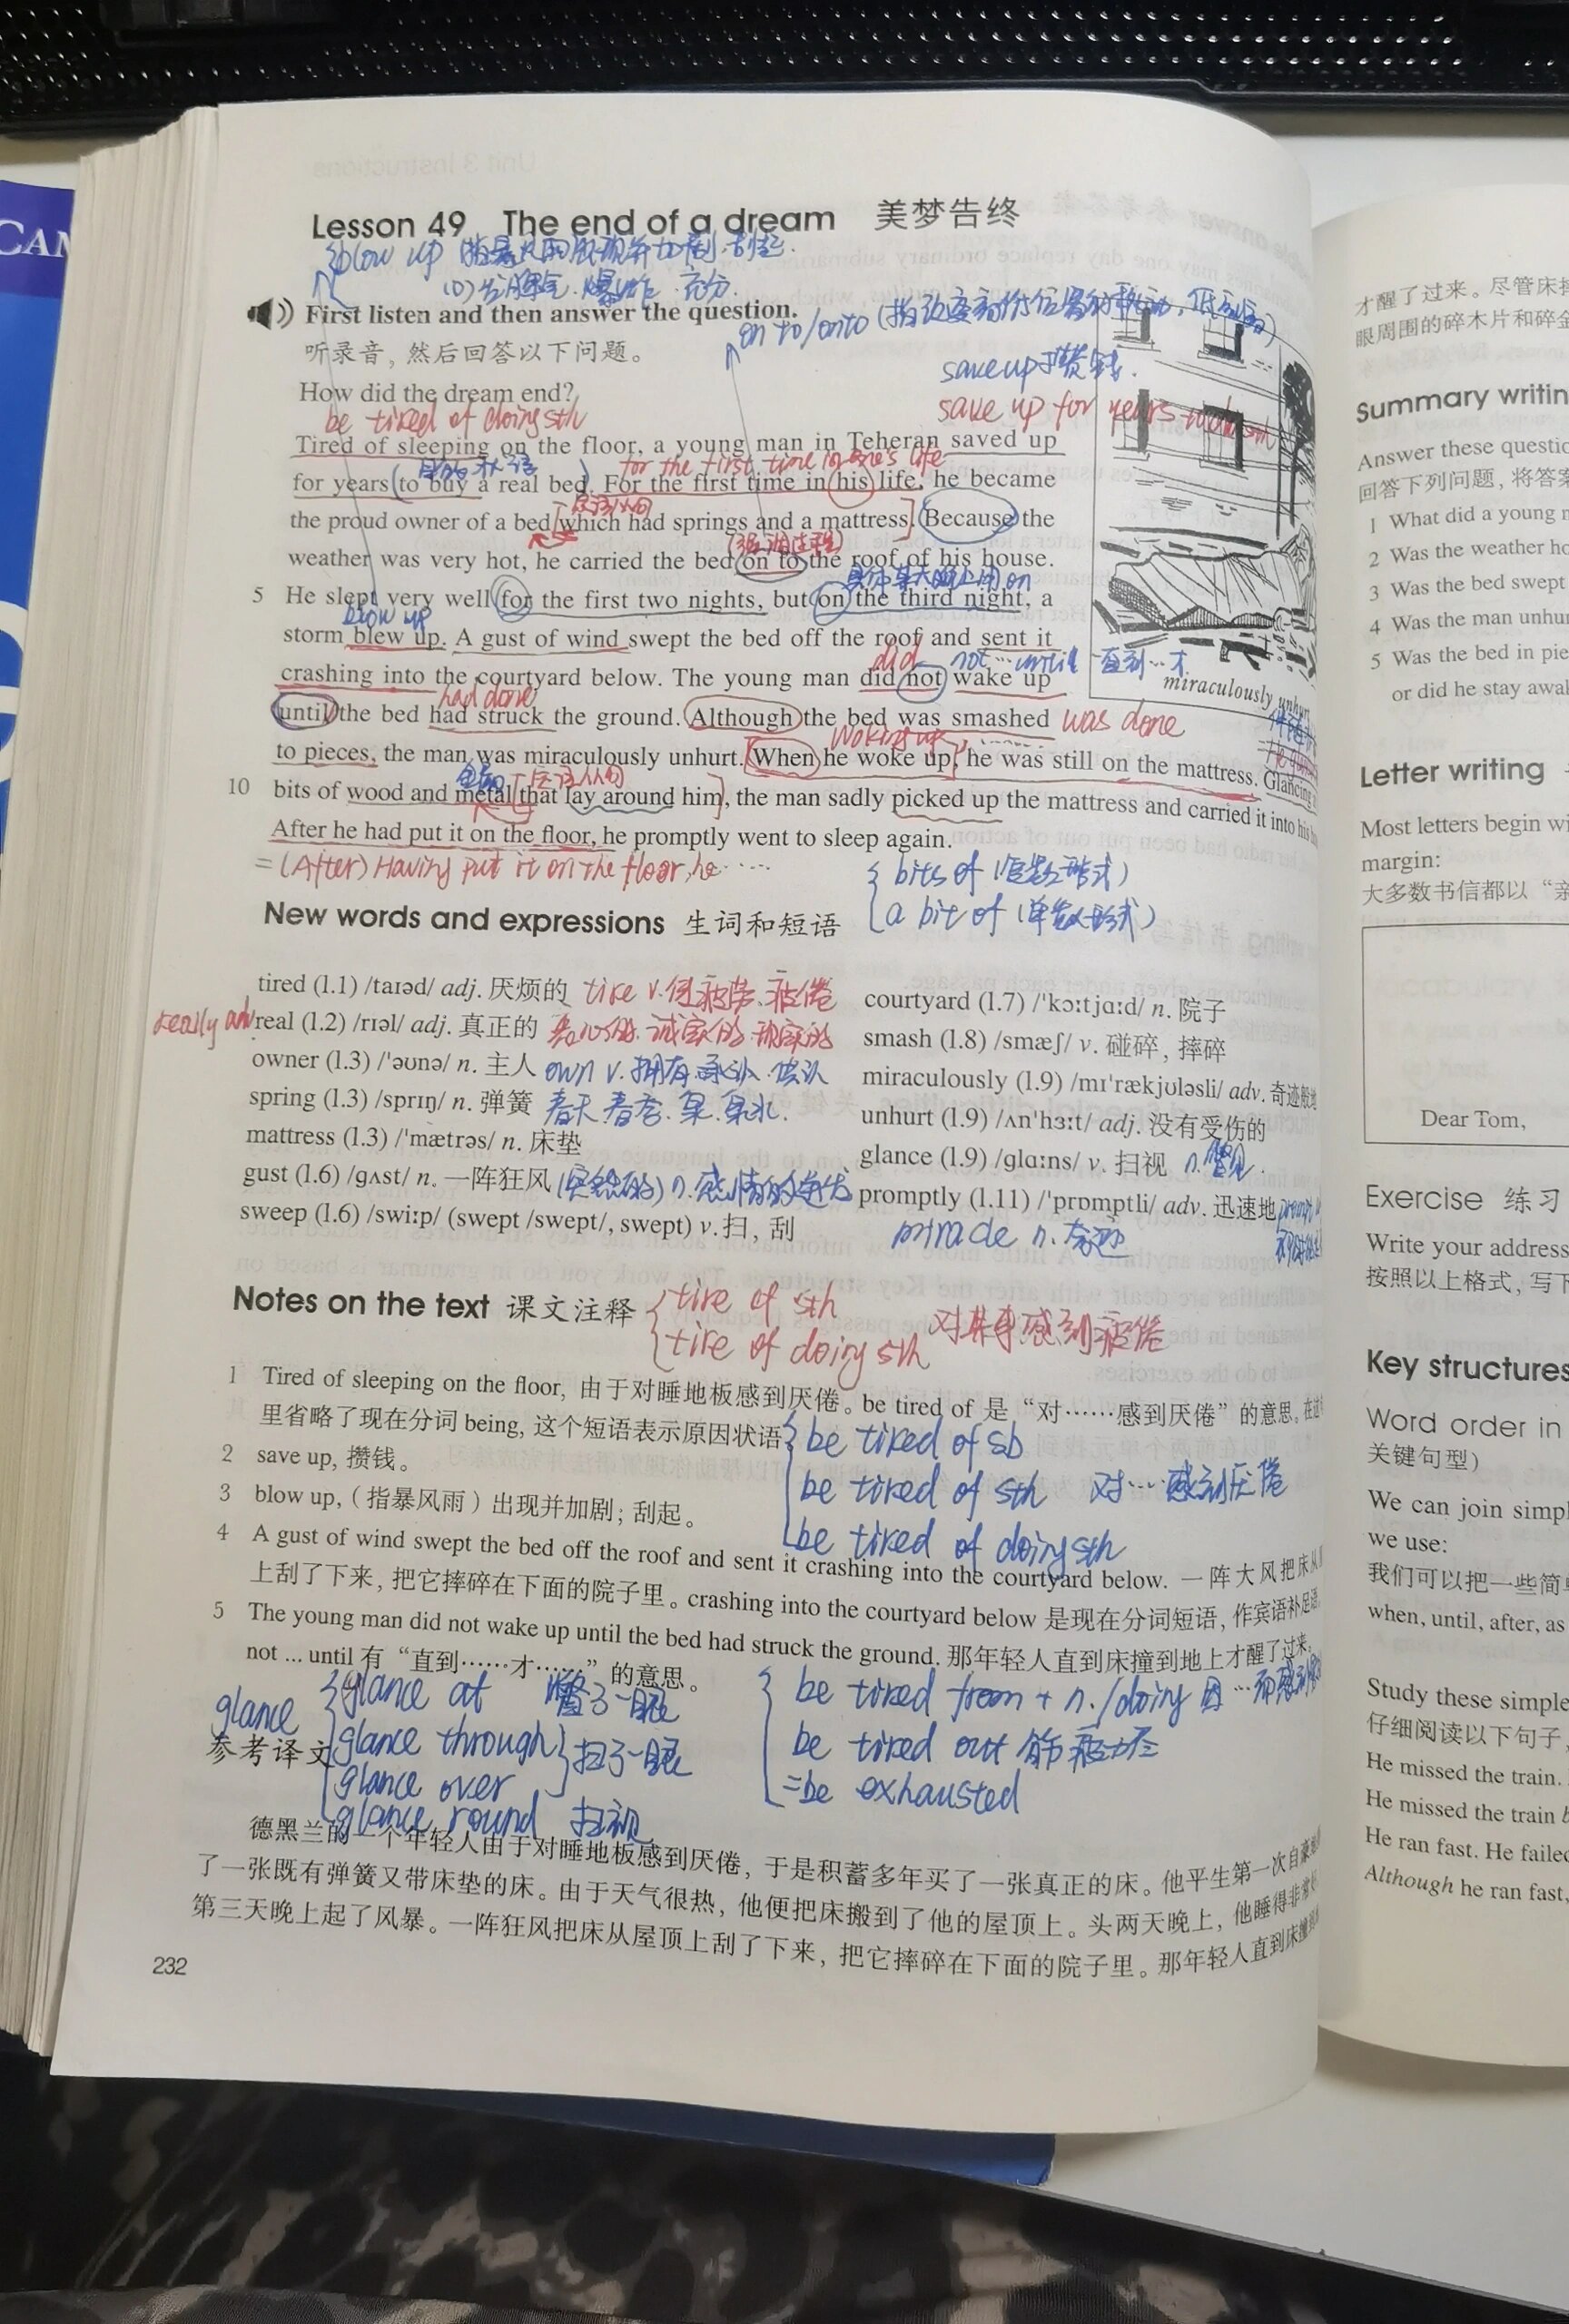 CAN
Lesson 49 The end of a dream 美梦告终
blow up 指暴风雨出现并加剧.刮起.
(1) 发脾气.爆炸.充分.
First listen and then answer the question.
听录音，然后回答以下问题。
on to/onto
save up 攒钱.
How did the dream end?
save up for years to do sth
be tired of doing sth
Tired of sleeping on the floor, a young man in Teheran saved up
for the first time in one's life
for years to buy a real bed. For the first time in his life, he became
定语从句
the proud owner of a bed which had springs and a mattress. Because the
weather was very hot, he carried the bed on to the roof of his house.
具体某天晚上用on
5 He slept very well for the first two nights, but on the third night, a
blow up
storm blew up. A gust of wind swept the bed off the roof and sent it
did not…until 直到…才
crashing into the courtyard below. The young man did not wake up
miraculously unhurt
had done
until the bed had struck the ground. Although the bed was smashed was done
to pieces, the man was miraculously unhurt. When he woke up, he was still on the mattress. Glancing
woking up
金属 定语从句
10 bits of wood and metal that lay around him, the man sadly picked up the mattress and carried it into his
After he had put it on the floor, he promptly went to sleep again.
=(After) Having put it on the floor, he……
bits of (复数形式)
a bit of (单数形式)
New words and expressions 生词和短语
tired (l.1) /taɪəd/ adj. 厌烦的 tire v.使疲劳.疲倦
really adv
real (l.2) /rɪəl/ adj. 真正的
owner (l.3) /ˈəʊnə/ n. 主人 own v.拥有.承认.供认
spring (l.3) /sprɪŋ/ n. 弹簧 春天.春季.泉.泉水.
mattress (l.3) /ˈmætrəs/ n. 床垫
gust (l.6) /ɡʌst/ n. 一阵狂风 (突然的) n.感情的迸发
sweep (l.6) /swiːp/ (swept /swept/, swept) v.扫，刮
courtyard (l.7) /ˈkɔːtjɑːd/ n. 院子
smash (l.8) /smæʃ/ v. 碰碎，摔碎
miraculously (l.9) /mɪˈrækjʊləsli/ adv. 奇迹般地
unhurt (l.9) /ʌnˈhɜːt/ adj. 没有受伤的
glance (l.9) /ɡlɑːns/ v. 扫视 n.瞥见.
promptly (l.11) /ˈprɒmptli/ adv. 迅速地
miracle n.奇迹
Notes on the text 课文注释
tire of sth
tire of doing sth 对某事感到疲倦
1 Tired of sleeping on the floor, 由于对睡地板感到厌倦。be tired of 是“对……感到厌倦”的意思。在这
里省略了现在分词 being, 这个短语表示原因状语
be tired of sb
2 save up, 攒钱。
be tired of sth 对…感到厌倦
3 blow up,（指暴风雨）出现并加剧；刮起。
be tired of doing sth
4 A gust of wind swept the bed off the roof and sent it crashing into the courtyard below. 一阵大风把床从
上刮了下来，把它摔碎在下面的院子里。crashing into the courtyard below 是现在分词短语，作宾语补足语。
5 The young man did not wake up until the bed had struck the ground. 那年轻人直到床撞到地上才醒了过来。
not ... until 有“直到……才……”的意思。
glance
glance at 瞥了一眼
glance through
glance over
扫了一眼
glance round 扫视
be tired from + n./doing 因…而感到
be tired out 筋疲力尽
=be exhausted
参考译文
德黑兰的一个年轻人由于对睡地板感到厌倦，于是积蓄多年买了一张真正的床。他平生第一次自豪
了一张既有弹簧又带床垫的床。由于天气很热，他便把床搬到了他的屋顶上。头两天晚上，他睡得非常
第三天晚上起了风暴。一阵狂风把床从屋顶上刮了下来，把它摔碎在下面的院子里。那年轻人直到床撞
232
才醒了过来。尽管床摔
眼周围的碎木片和碎金
Summary writin
Answer these questio
回答下列问题，将答案
1 What did a young
2 Was the weather ho
3 Was the bed swept
4 Was the man unhu
5 Was the bed in pie
or did he stay awa
Letter writing
Most letters begin wi
margin:
大多数书信都以“亲
Dear Tom,
Exercise 练习
Write your address
按照以上格式，写下
Key structures
Word order in
关键句型）
We can join simpl
we use:
我们可以把一些简单
when, until, after, as
Study these simple
仔细阅读以下句子，
He missed the train.
He missed the train b
He ran fast. He failed
Although he ran fast,